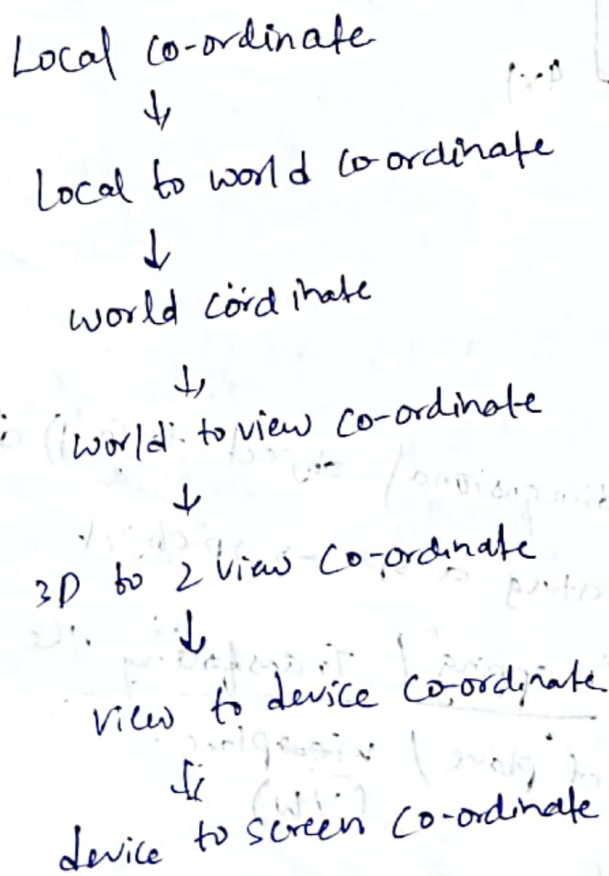 Local co-ordinate
↓
Local to world co-ordinate
↓
world coordinate
↓
world to view co-ordinate
↓
3D to 2 view co-ordinate
↓
view to device co-ordinate
↓
device to screen co-ordinate